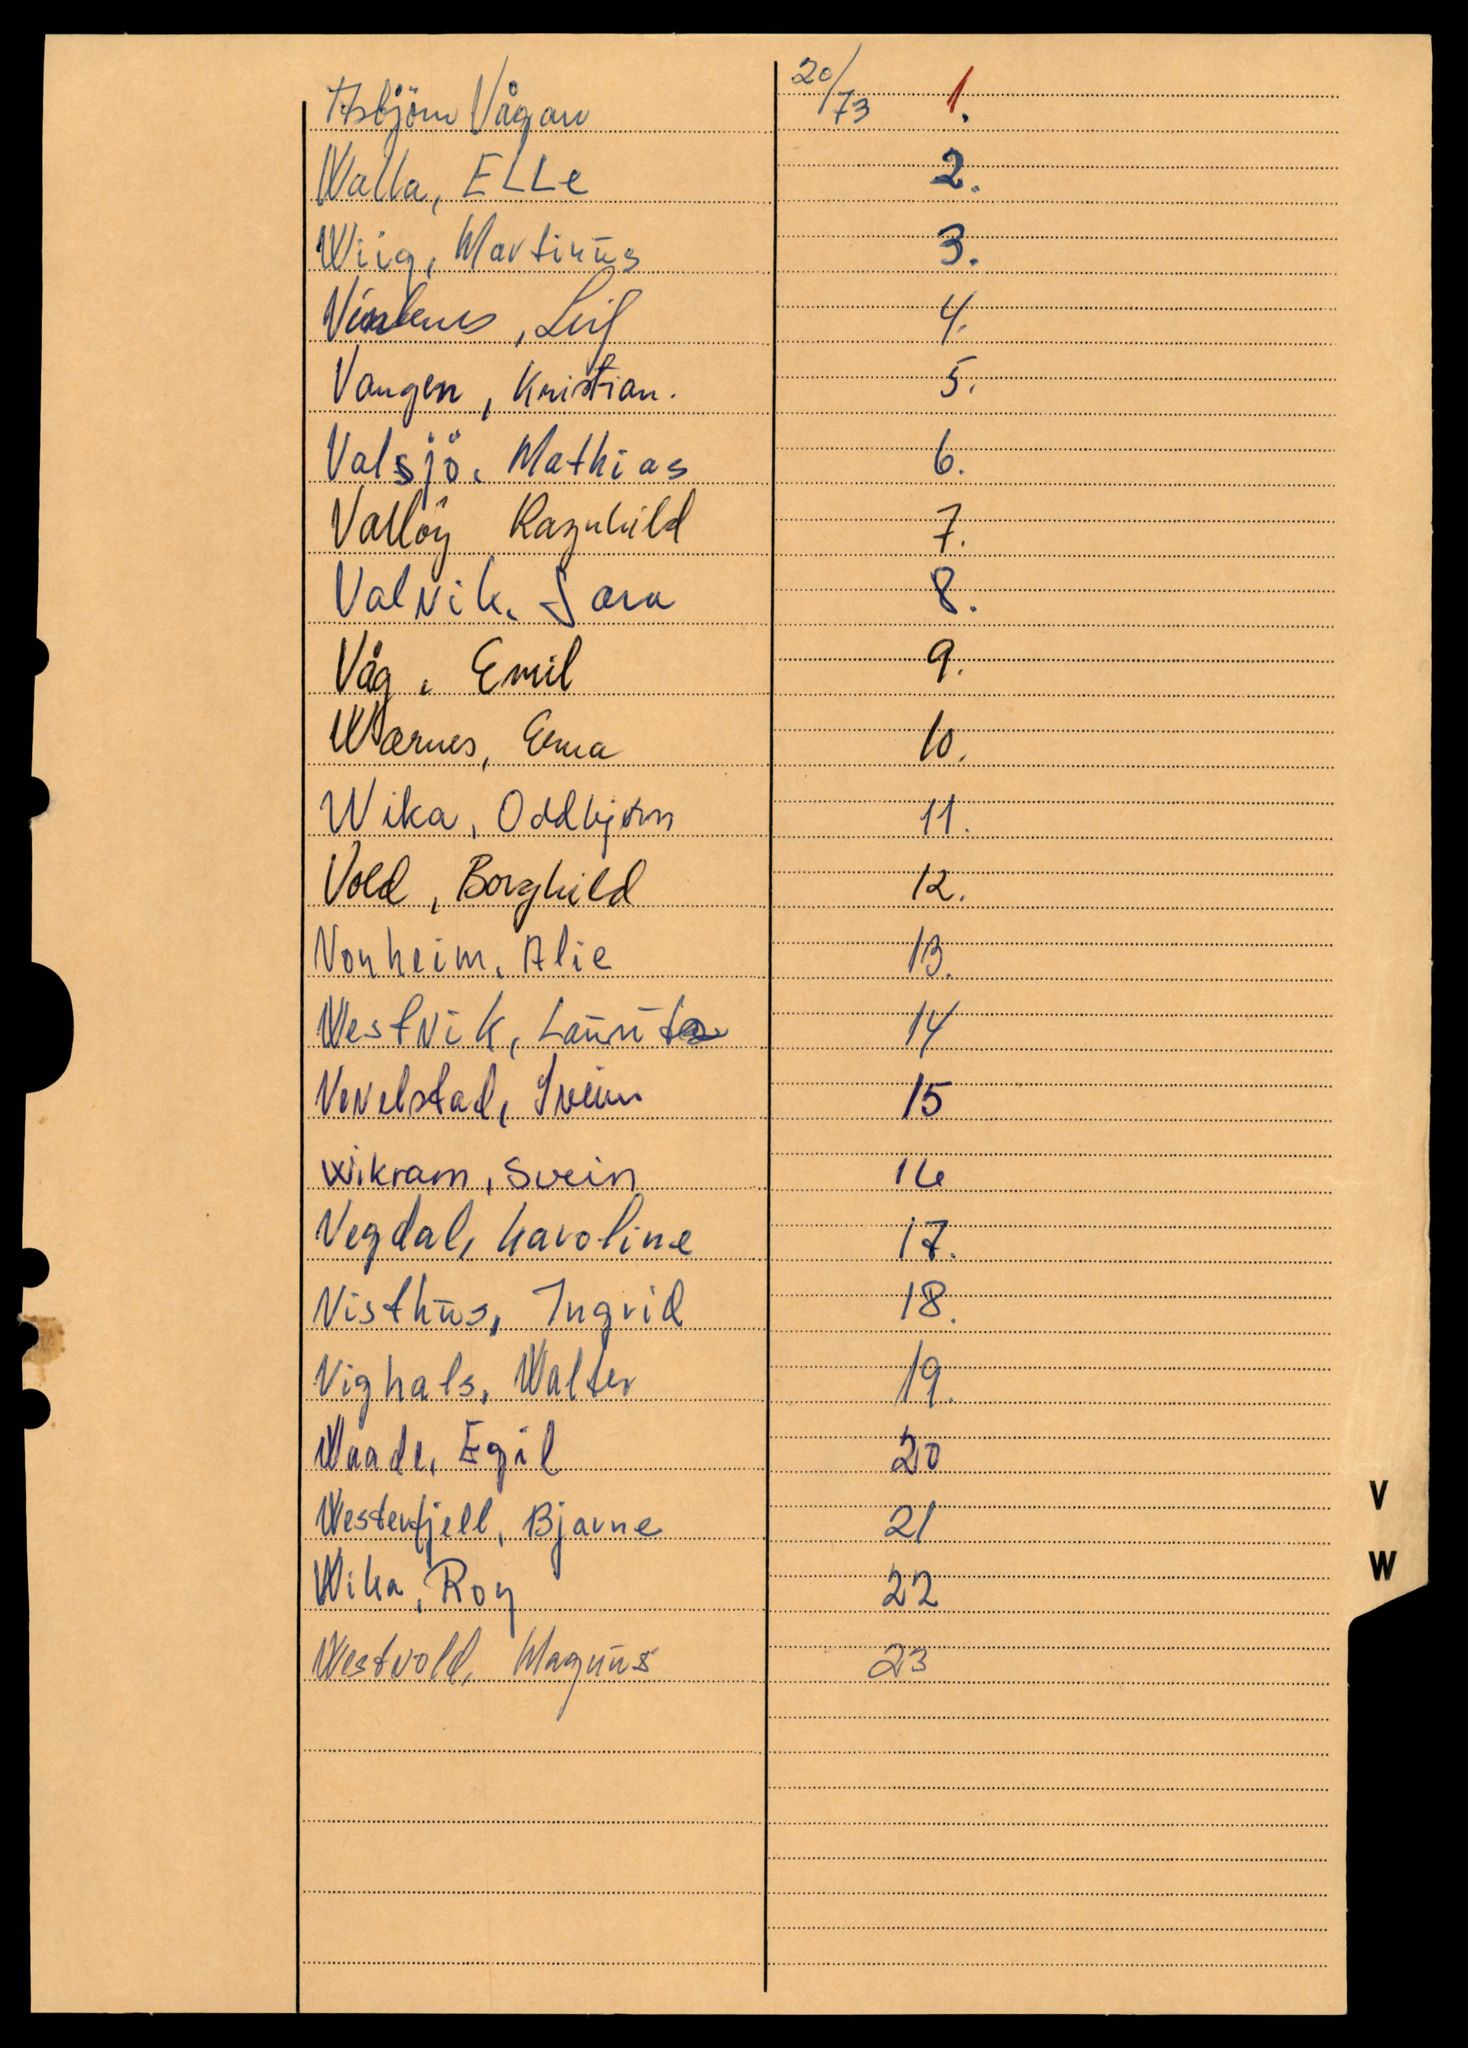 Asbjörn Vågan 20/73 1.
Walla, ELLe 2.
Wiig, Martinus 3.
Leif 4.
Vangen, Kristian. 5.
Valsjö, Mathias 6.
Valløy Ragnhild 7.
Valvik, Sara 8.
Våg, Emil 9.
Wærnes, Erna 10.
Wika, Oddbjørn 11.
Vold, Borghild 12.
Vonheim, Alie 13.
Westvik, Laurits 14
Vevelstad, Svein 15
Wikram, Svein 16
Vegdal, Karoline 17.
Visthus, Ingrid 18.
Vighals, Walter 19.
Waade, Egil 20
Westerfjell, Bjarne 21
Wika, Roy 22
Westvold, Magnus 23
V
W